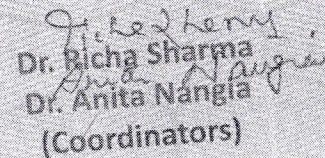 Dr. Richa Sharma
Dr. Anita Nangia
(Coordinators)